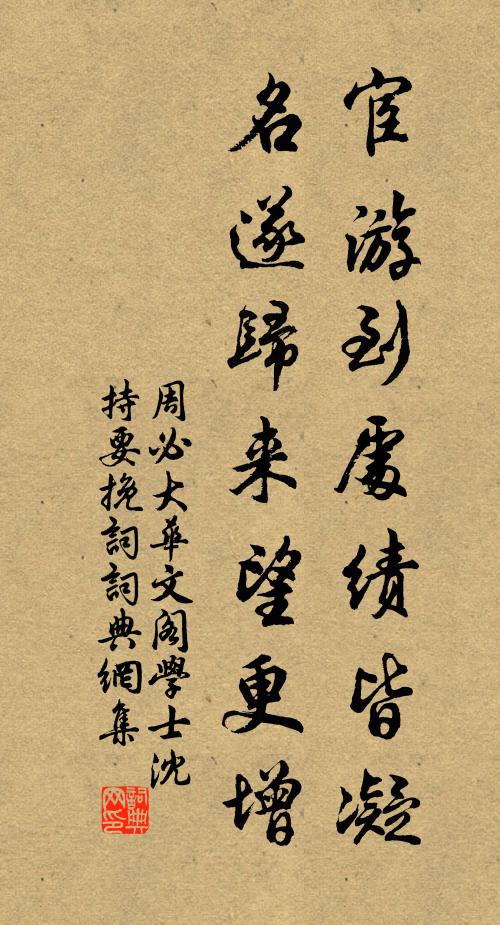 宦游到處績皆凝
名遂歸来望更增
周必大華文閣學士沈
持要挽詞詞典網集
詞典网印